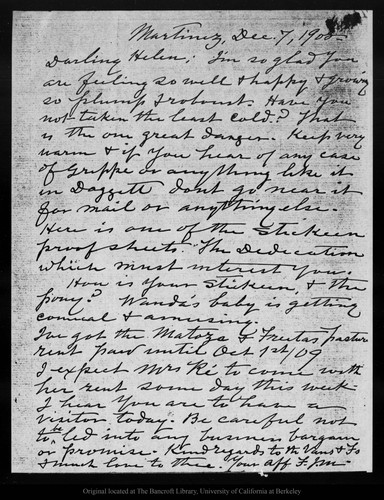 Martinez, Dec. 7, 1908
Darling Helen: I'm so glad you
are feeling so well & happy & growing
so plump & robust. Have you
not taken the least cold? That
is the one great danger. Keep very
warm & if you hear of any case
of Grippe or anything like it
in Daggett don't go near it
for mail or anything else.
Here is one of the Stickeen
proof sheets. The Dedication
which must interest you.
How is your Stickeen, & the
pony? Wanda's baby is getting
comical & amusing.
I've got the Matoza & Freitas pasture
rent paid until Oct 1st/09
I expect Mrs Ré to come with
her rent some day this week
I hear you are to have a
visitor today. Be careful not
to be led into any business bargain
or promise. Kind regards to the Vans & Fs
& much love to thee. Your aff F. J.M.
Original located at The Bancroft Library, University of California at Berkeley